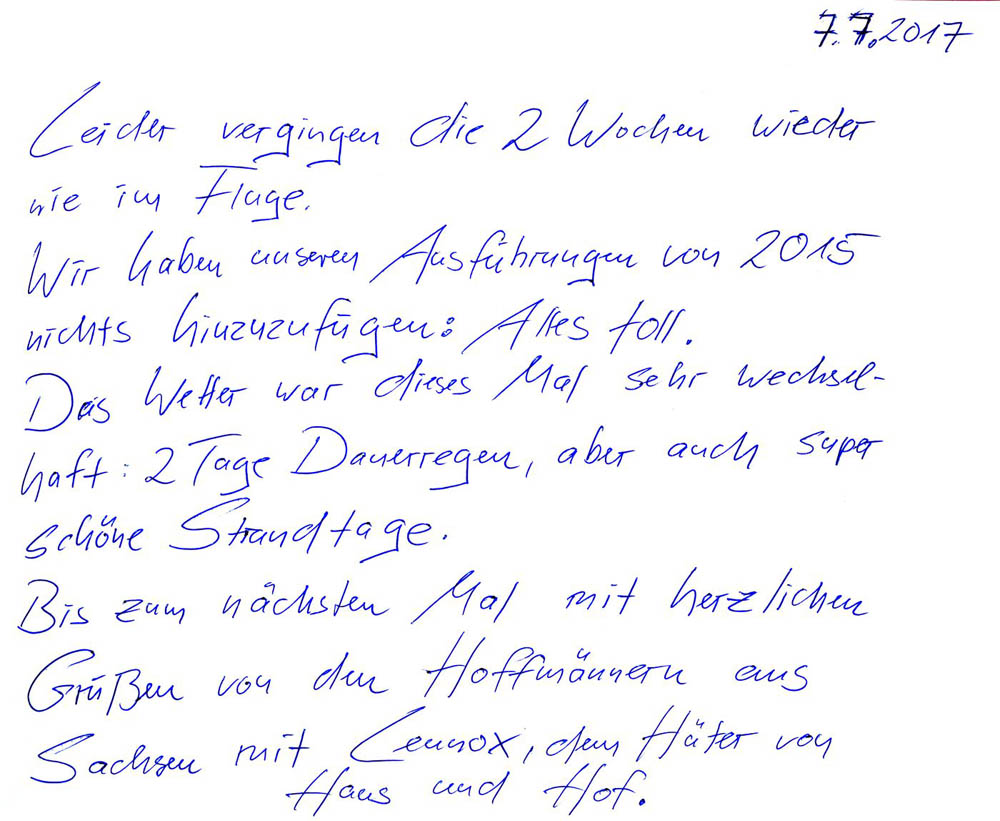 7.7.2017
Leider vergingen die 2 Wochen wieder
wie im Fluge.
Wir haben unseren Ausführungen von 2015
nichts hinzuzufügen: Alles toll.
Das Wetter war dieses Mal sehr wechsel-
haft: 2 Tage Dauerregen, aber auch super
schöne Strandtage.
Bis zum nächsten Mal mit herzlichen
Grüßen von den Hoffmännern aus
Sachsen mit Lennox, dem Hüter von
Haus und Hof.